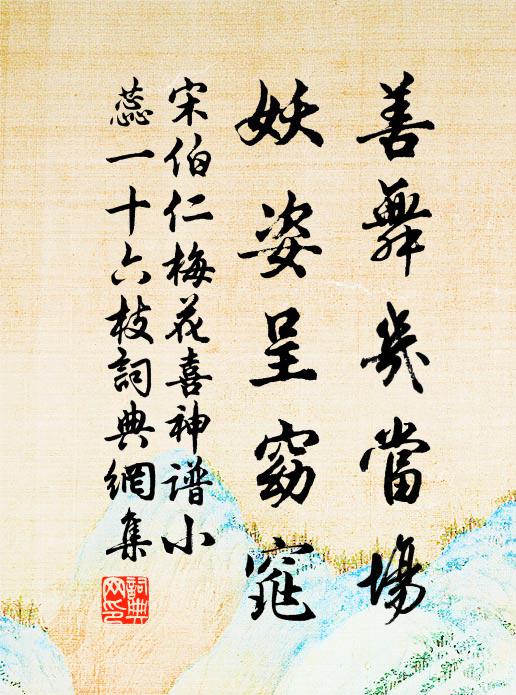 善舞幾當場
妖姿呈窈窕
宋伯仁梅花喜神譜小
蕊一十六枝詞典網集
詞典
网印